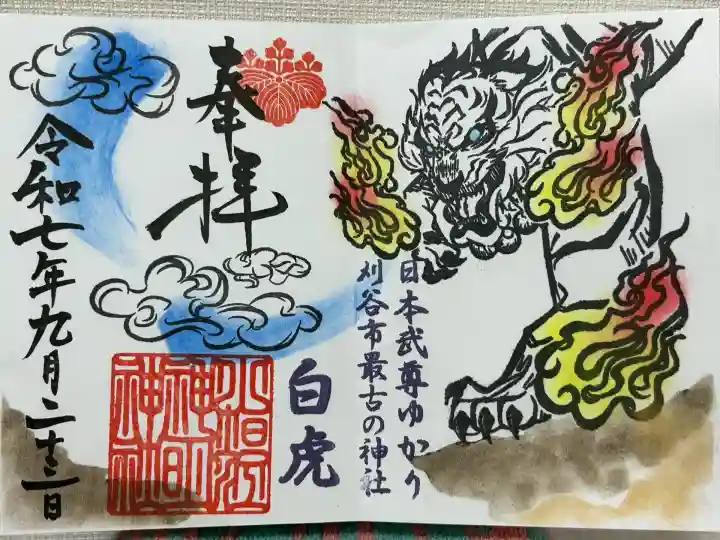 日本武尊ゆかり
刈谷市最古の神社
白虎
奉拝
小垣江
神明
神社
令和七年九月二十三日